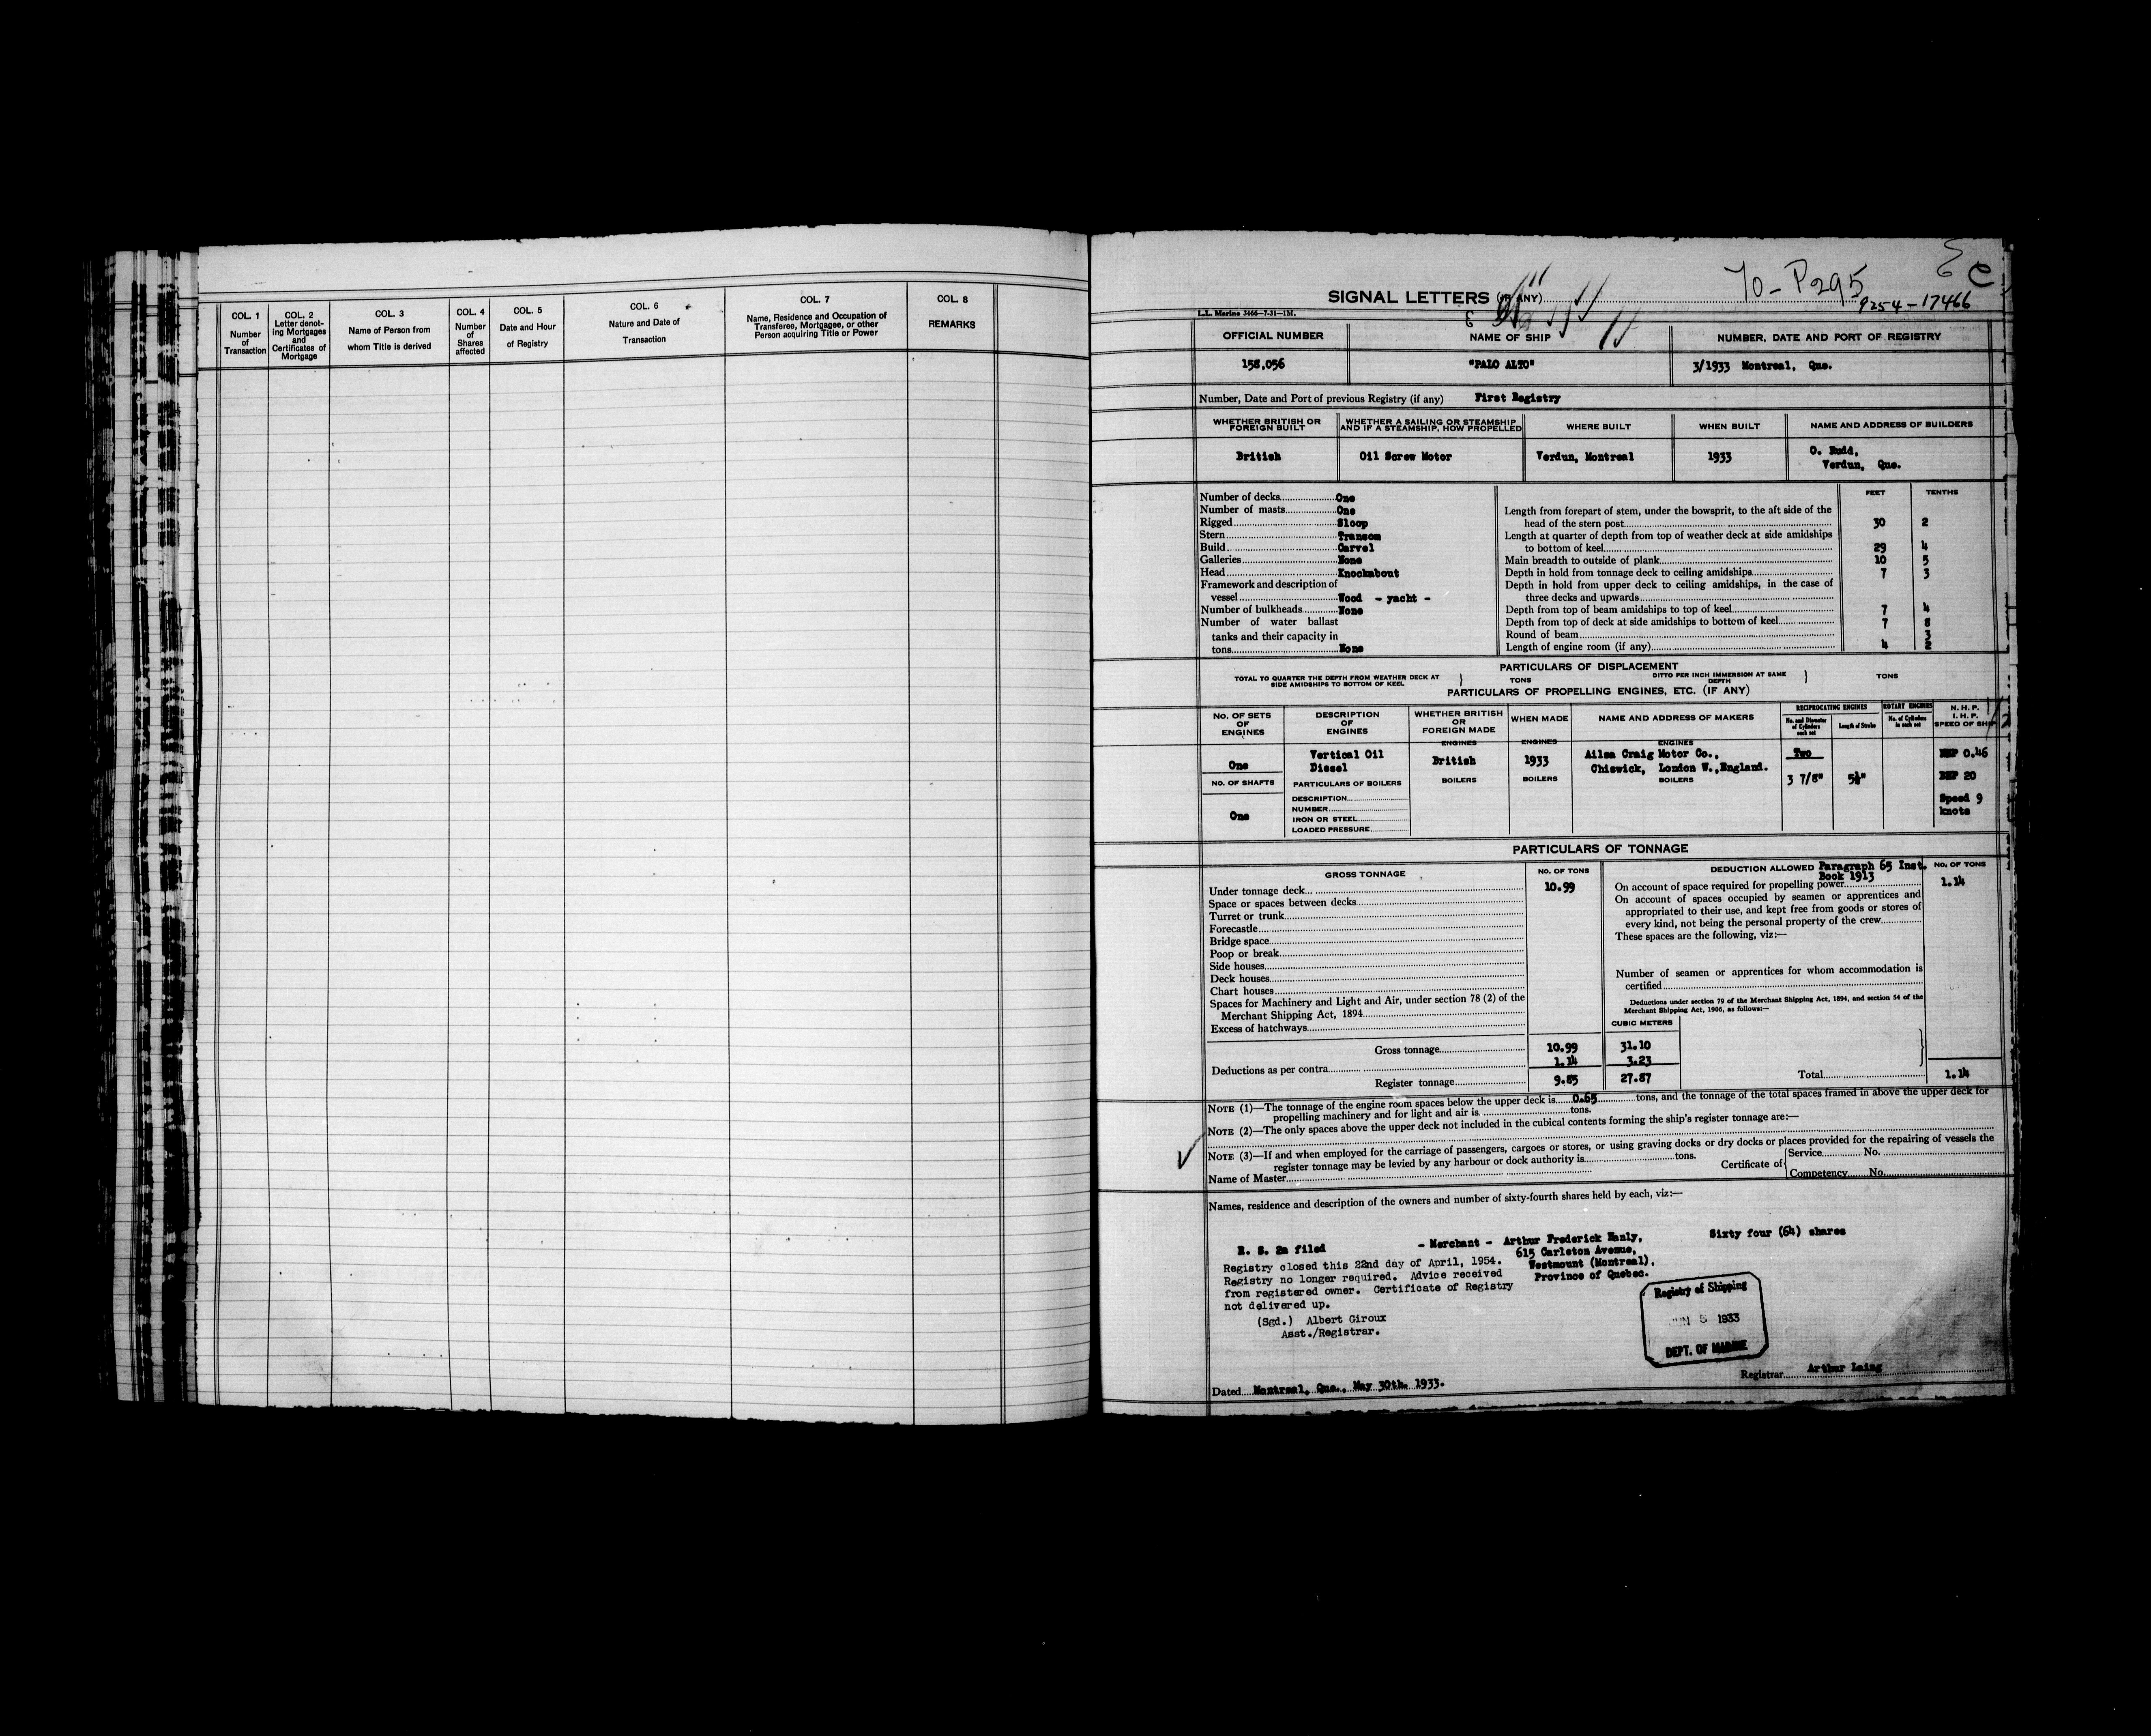 COL. 1
Number
of
Transaction
COL. 2
Letter denot-
ing Mortgages
and
Certificates of
Mortgage
COL. 3
Name of Person from
whom Title is derived
COL. 4
Number
of
Shares
affected
COL. 5
Date and Hour
of Registry
COL. 6
Nature and Date of
Transaction
COL. 7
Name, Residence and Occupation of
Transferee, Mortgagee, or other
Person acquiring Title or Power
COL. 8
REMARKS
70-P295
9254-17466
SIGNAL LETTERS (IF ANY)
L.L. Marine 3466-7-31-1M.
OFFICIAL NUMBER NAME OF SHIP NUMBER, DATE AND PORT OF REGISTRY
158,056 "PALO ALTO" 3/1933 Montreal, Que.
Number, Date and Port of previous Registry (if any) First Registry
WHETHER BRITISH OR
FOREIGN BUILT
WHETHER A SAILING OR STEAMSHIP
AND IF A STEAMSHIP, HOW PROPELLED
WHERE BUILT WHEN BUILT NAME AND ADDRESS OF BUILDERS
British Oil Screw Motor Verdun, Montreal 1933 O. Rudd,
Verdun, Que.
Number of decks One
Number of masts One
Rigged Sloop
Stern Transom
Build Carvel
Galleries None
Head Knockabout
Framework and description of
vessel Wood - yacht -
Number of bulkheads None
Number of water ballast
tanks and their capacity in
tons None
FEET TENTHS
Length from forepart of stem, under the bowsprit, to the aft side of the
head of the stern post 30 2
Length at quarter of depth from top of weather deck at side amidships
to bottom of keel 29 4
Main breadth to outside of plank 10 5
Depth in hold from tonnage deck to ceiling amidships 7 3
Depth in hold from upper deck to ceiling amidships, in the case of
three decks and upwards
Depth from top of beam amidships to top of keel 7 4
Depth from top of deck at side amidships to bottom of keel 7 8
Round of beam 3
Length of engine room (if any) 4 2
PARTICULARS OF DISPLACEMENT
TOTAL TO QUARTER THE DEPTH FROM WEATHER DECK AT
SIDE AMIDSHIPS TO BOTTOM OF KEEL
TONS
DITTO PER INCH IMMERSION AT SAME
DEPTH
TONS
PARTICULARS OF PROPELLING ENGINES, ETC. (IF ANY)
No. OF SETS
OF
ENGINES
DESCRIPTION
OF
ENGINES
WHETHER BRITISH
OR
FOREIGN MADE
WHEN MADE
NAME AND ADDRESS OF MAKERS
RECIPROCATING ENGINES
No. and Diameter
of Cylinders
each set
Length of Stroke
ROTARY ENGINES
No. of Cylinders
in each set
N. H. P.
I. H. P.
SPEED OF SHIP
ENGINES ENGINES ENGINES
One Vertical Oil
Diesel
British 1933 Ailsa Craig Motor Co.,
Chiswick, London W., England.
Two
NHP 0.46
NO. OF SHAFTS PARTICULARS OF BOILERS BOILERS BOILERS BOILERS
3 7/8" BHP 20
One
DESCRIPTION
NUMBER
IRON OR STEEL
LOADED PRESSURE
Speed 9
knots
PARTICULARS OF TONNAGE
GROSS TONNAGE NO. OF TONS
Under tonnage deck 10.99
Space or spaces between decks
Turret or trunk
Forecastle
Bridge space
Poop or break
Side houses
Deck houses
Chart houses
Spaces for Machinery and Light and Air, under section 78 (2) of the
Merchant Shipping Act, 1894
Excess of hatchways
Gross tonnage 10.99 31.10
Deductions as per contra 1.14 3.23
Register tonnage 9.85 27.87
DEDUCTION ALLOWED Paragraph 65 Inst. NO. OF TONS
Book 1913
On account of space required for propelling power 1.14
On account of spaces occupied by seamen or apprentices and
appropriated to their use, and kept free from goods or stores of
every kind, not being the personal property of the crew
These spaces are the following, viz:—
Number of seamen or apprentices for whom accommodation is
certified
Deductions under section 79 of the Merchant Shipping Act, 1894, and section 54 of the
Merchant Shipping Act, 1906, as follows:—
CUBIC METERS
Total 1.14
NOTE (1)—The tonnage of the engine room spaces below the upper deck is 0.65 tons, and the tonnage of the total spaces framed in above the upper deck for
propelling machinery and for light and air is tons.
NOTE (2)—The only spaces above the upper deck not included in the cubical contents forming the ship's register tonnage are:—
NOTE (3)—If and when employed for the carriage of passengers, cargoes or stores, or using graving docks or dry docks or places provided for the repairing of vessels the
register tonnage may be levied by any harbour or dock authority is tons.
Certificate of
Service No.
Competency No.
Name of Master
Names, residence and description of the owners and number of sixty-fourth shares held by each, viz:—
R. S. 2a filed
- Merchant - Arthur Frederick Hanly,
615 Carleton Avenue,
Westmount (Montreal),
Province of Quebec.
Sixty four (64) shares
Registry closed this 22nd day of April, 1954.
Registry no longer required. Advice received
from registered owner. Certificate of Registry
not delivered up.
(Sgd.) Albert Giroux
Asst./Registrar.
Registry of Shipping
JUN 5 1933
DEPT. OF MARINE
Registrar Arthur Laing
Dated Montreal, Que., May 30th. 1933.